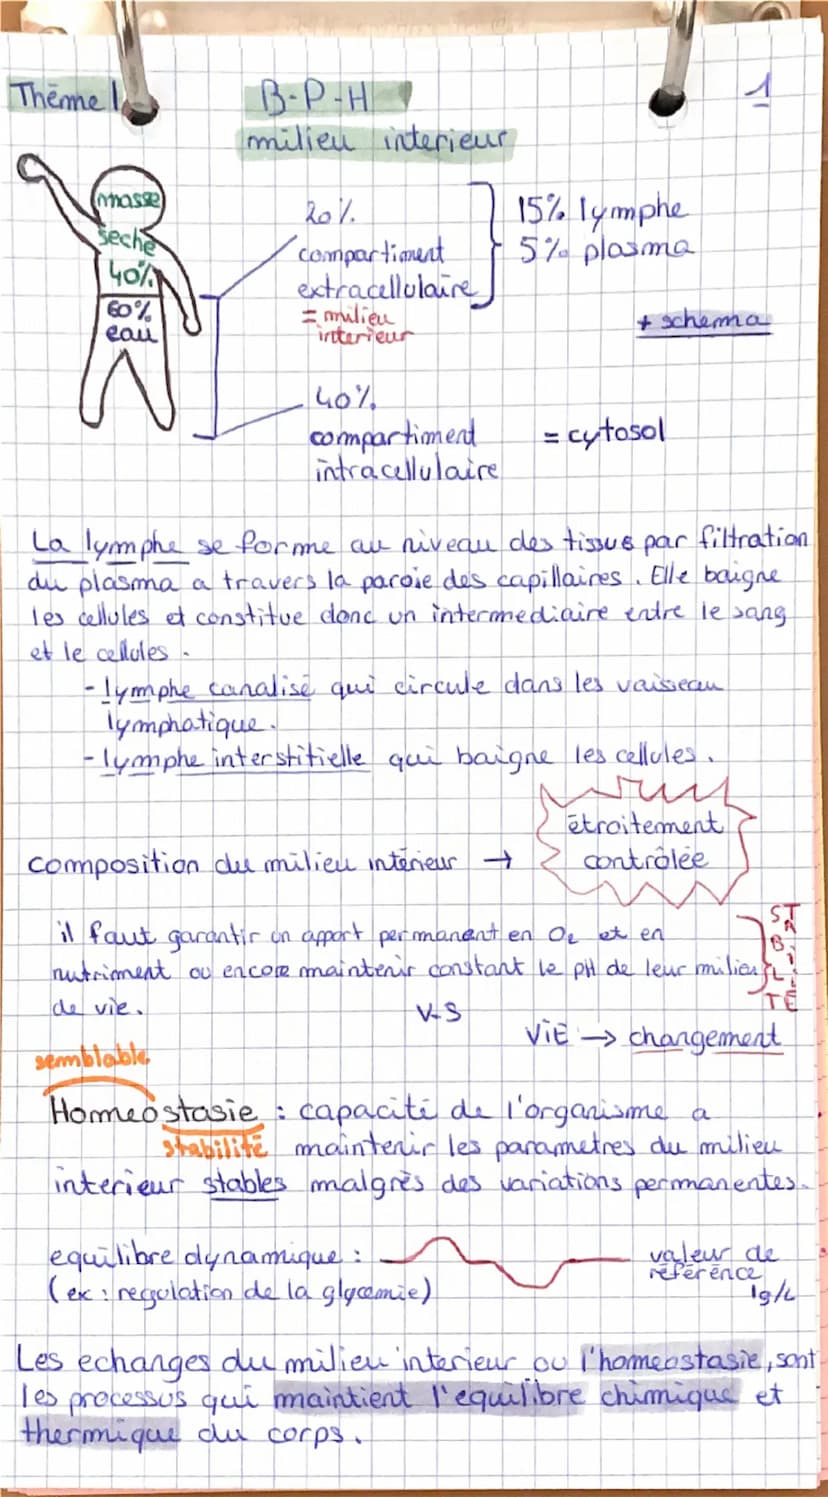 Thème 1
B-P-H
1
milieu interieur
masse
seche
40%
60%
eau
20%
compartiment
extracellulaire
= milieu
interieur
15% lymphe
5% plasma
+ schema
40%
compartiment
intracellulaire
= cytosol
La lymphe se forme au niveau des tissus par filtration
du plasma a travers la paroie des capillaires. Elle baigne
les cellules et constitue donc un intermediaire entre le sang
et le cellules.
- lymphe canalisé qui circule dans les vaisseau
lymphatique.
- lymphe interstitielle qui baigne les cellules.
composition du milieu intérieur →
étroitement
contrôlée
il faut garantir un apport permanent en O₂ et en
nutriment ou encore maintenir constant le pH de leur milieu
de vie.
STABILITÉ
V-S
ViE → changement
semblable
Homeostasie : capacité de l'organisme a
stabilité
maintenir les parametres du milieu
interieur stables malgrès des variations permanentes.
equilibre dynamique :
(ex : regulation de la glycemie)
valeur de
référence
1g/L
Les echanges du milieu interieur ou l'homeostasie, sont
les processus qui maintient l'equilibre chimique et
thermique du corps.